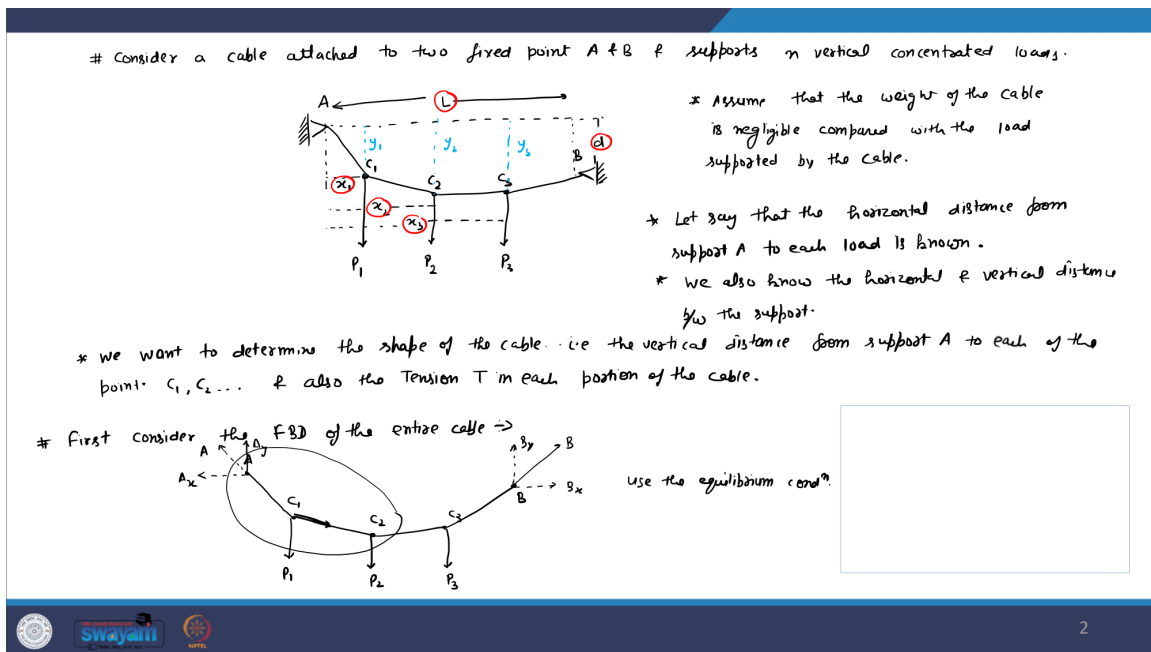 # Consider a cable attached to two fixed point A & B & supports n vertical concentrated loads.
A L
* Assume that the weight of the cable
is negligible compared with the load
supported by the cable.
y₁ y₂ y₃ d
B
C₁ C₂ C₃
x₁
x₂
x₃
P₁ P₂ P₃
* Let say that the horizontal distance from
support A to each load is known.
* we also know the horizontal & vertical distance
b/w the support.
* we want to determine the shape of the cable. i.e the vertical distance from support A to each of the
point. C₁, C₂ ... & also the Tension T in each portion of the cable.
# First consider the FBD of the entire cable →
A Ay By B
Ax A B Bx
use the equilibrium condⁿ.
C₁ C₂ C₃
P₁ P₂ P₃
swayam NPTEL 2